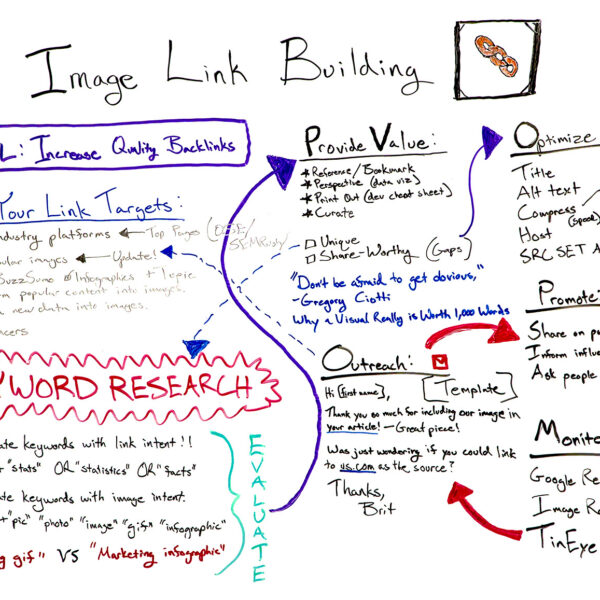 Image Link Building
L: Increase Quality Backlinks
Your Link Targets:
industry platforms ← Top Pages (OSE/
SEMRush)
ular images ← Update!
BuzzSumo Infographics + Topic
popular content into images.
new data into images.
YWORD RESEARCH
ate keywords with link intent!!
"stats" OR "statistics" OR "facts"
ate keywords with image intent:
+ "pic" "photo" "image" "gif" "infographic"
g gif" VS "Marketing infographic"
EVALUATE
Provide Value:
* Reference/Bookmark
* Perspective (data viz)
* Print Out (dev cheat sheet)
* Curate
□ Unique
□ Share-Worthy (Gaps)
"Don't be afraid to get obvious,"
- Gregory Ciotti
Why a Visual Really is Worth 1,000 Words
Outreach:
Hi [first name], [Template]
Thank you so much for including our image in
your article! - Great piece!
Was just wondering if you could link
to us.com as the source?
Thanks,
Brit
Optimize
Title
Alt text
Compress
(speed)
Host
SRC SET A
Promote:
Share on po
Inform influ
Ask people
Monito
Google Re
Image Ra
TinEye